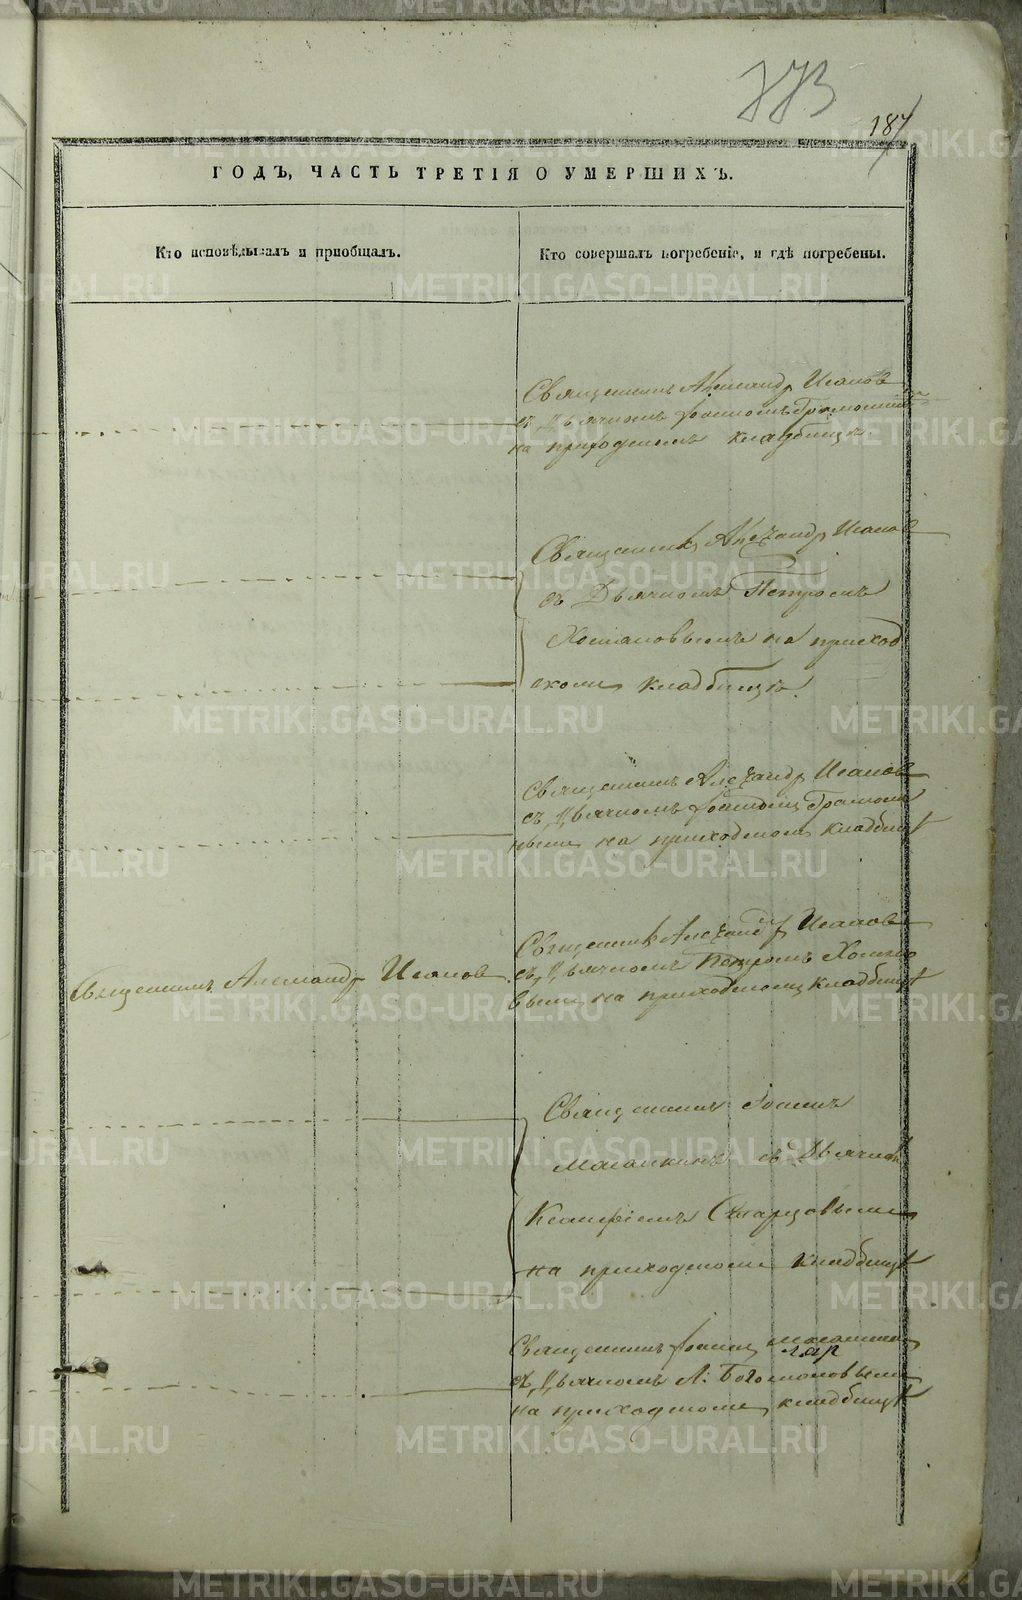 373
187
ГОДЪ, ЧАСТЬ ТРЕТІЯ О УМЕРШИХЪ.
Кто исповѣдывалъ и приобщалъ.
Кто совершалъ погребеніе, и гдѣ погребены.
Священникъ Александр Иванов
съ Дьячкомъ
на приходскомъ кладбищѣ
Священникъ Александр Иванов
съ Дьячкомъ Петромъ
на приход
скомъ кладбищѣ.
Священникъ Александр Иванов
съ Дьячкомъ
на приходскомъ кладбищѣ
Священникъ Александр Иванов
Священникъ Александр Иванов
съ Дьячкомъ Петромъ
на приходскомъ кладбищѣ
Священникъ Іоаннъ
съ Дьячком
на приходскомъ кладбищѣ
Священникъ Іоаннъ
съ Дьячкомъ А.
на приходскомъ кладбищѣ
METRIKI.GASO-URAL.RU